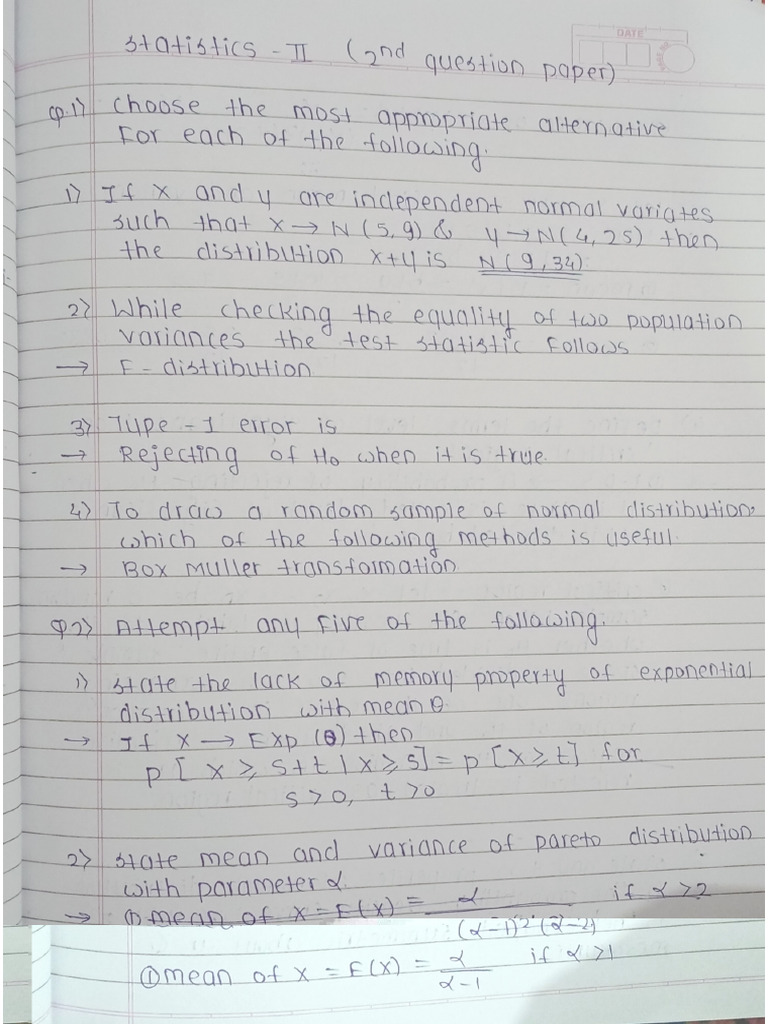 DATE
Statistics - II (2nd question paper)
Q.1) Choose the most appropriate alternative
For each of the following.
1) If X and Y are independent normal variates
such that X → N (5,9) & Y → N(4,25) then
the distribution X+Y is N(9,34).
2) While checking the equality of two population
variances the test statistic follows
→ F - distribution
3) Type - I error is
→ Rejecting of H0 when it is true.
4) To draw a random sample of normal distribution,
which of the following methods is useful.
→ Box Muller transformation
Q.2) Attempt any Five of the following.
1) State the lack of memory property of exponential
distribution with mean θ
→ If X → Exp (θ) then
P [ X ≥ s+t | X ≥ s] = P [X ≥ t] for
s > 0, t > 0
2) State mean and variance of pareto distribution
with parameter α.
→ ① mean of X = E(X) = α if α > 2
(α-1)² (α-2)
① mean of X = E(X) = α if α > 1
α-1